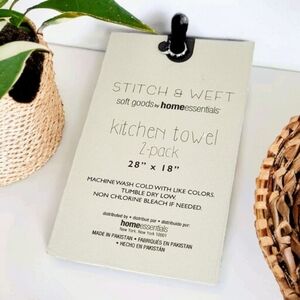 STITCH & WEFT
soft goods by homeessentials
kitchen towel
2-pack
28" x 18"
MACHINE WASH COLD WITH LIKE COLORS.
TUMBLE DRY LOW.
NON CHLORINE BLEACH IF NEEDED.
distributed by • distribué par • distribuido por:
homeessentials
New York, New York 10001
MADE IN PAKISTAN • FABRIQUÉS EN PAKISTAN
• HECHO EN PAKISTÁN